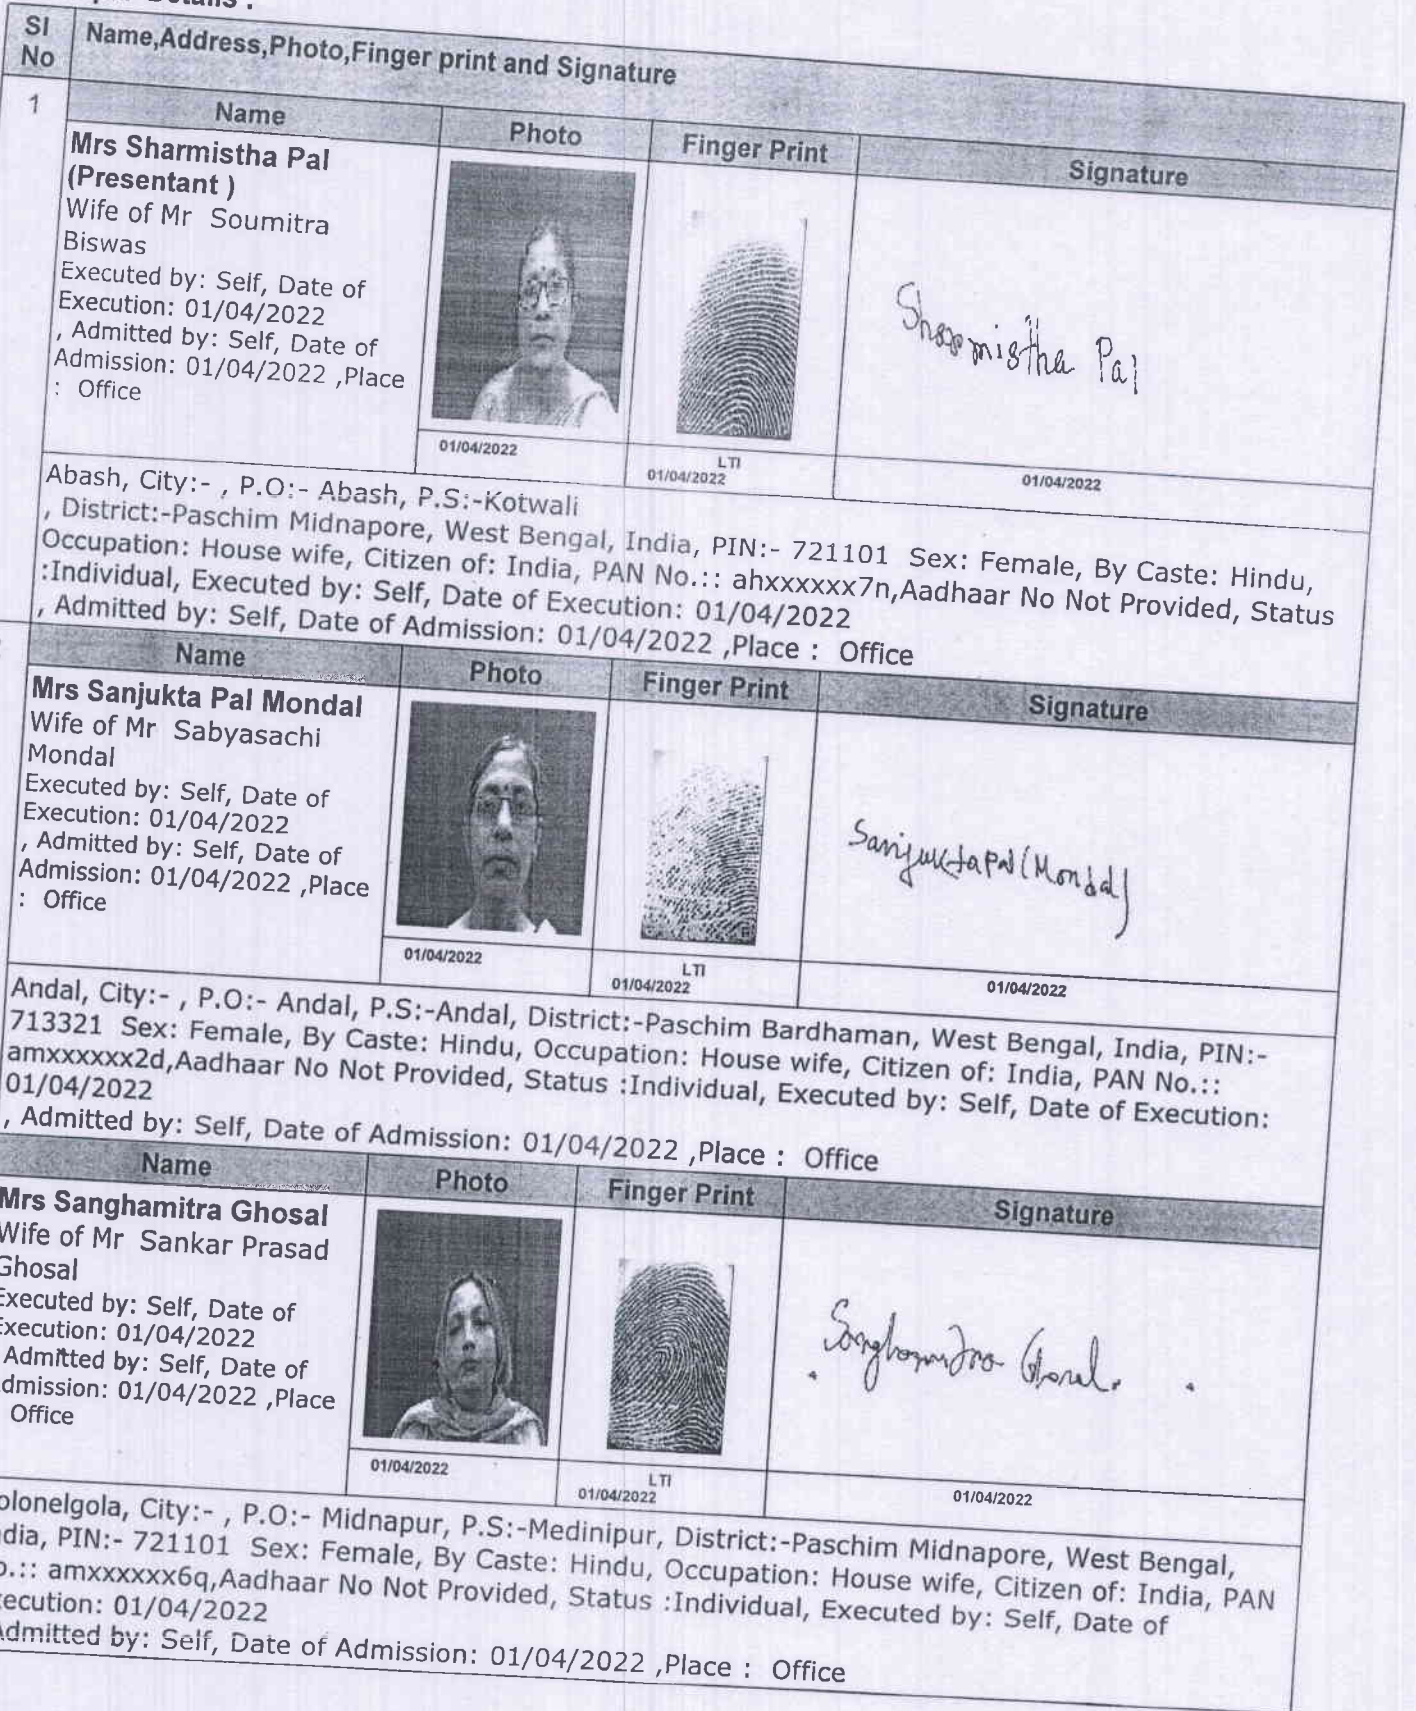 Details :
Sl No
Name,Address,Photo,Finger print and Signature
1
Name
Photo
Finger Print
Signature
Mrs Sharmistha Pal
(Presentant )
Wife of Mr Soumitra
Biswas
Executed by: Self, Date of
Execution: 01/04/2022
, Admitted by: Self, Date of
Admission: 01/04/2022 ,Place
: Office
Sharmistha Pal
01/04/2022
LTI
01/04/2022
01/04/2022
Abash, City:- , P.O:- Abash, P.S:-Kotwali
, District:-Paschim Midnapore, West Bengal, India, PIN:- 721101 Sex: Female, By Caste: Hindu,
Occupation: House wife, Citizen of: India, PAN No.:: ahxxxxxx7n,Aadhaar No Not Provided, Status
:Individual, Executed by: Self, Date of Execution: 01/04/2022
, Admitted by: Self, Date of Admission: 01/04/2022 ,Place : Office
Name
Photo
Finger Print
Signature
Mrs Sanjukta Pal Mondal
Wife of Mr Sabyasachi
Mondal
Executed by: Self, Date of
Execution: 01/04/2022
, Admitted by: Self, Date of
Admission: 01/04/2022 ,Place
: Office
Sanjukta Pal (Mondal)
01/04/2022
LTI
01/04/2022
01/04/2022
Andal, City:- , P.O:- Andal, P.S:-Andal, District:-Paschim Bardhaman, West Bengal, India, PIN:-
713321 Sex: Female, By Caste: Hindu, Occupation: House wife, Citizen of: India, PAN No.::
amxxxxxx2d,Aadhaar No Not Provided, Status :Individual, Executed by: Self, Date of Execution:
01/04/2022
, Admitted by: Self, Date of Admission: 01/04/2022 ,Place : Office
Name
Photo
Finger Print
Signature
Mrs Sanghamitra Ghosal
Wife of Mr Sankar Prasad
Ghosal
Executed by: Self, Date of
Execution: 01/04/2022
Admitted by: Self, Date of
dmission: 01/04/2022 ,Place
Office
Sanghamitra Ghosal.
01/04/2022
LTI
01/04/2022
01/04/2022
olonelgola, City:- , P.O:- Midnapur, P.S:-Medinipur, District:-Paschim Midnapore, West Bengal,
dia, PIN:- 721101 Sex: Female, By Caste: Hindu, Occupation: House wife, Citizen of: India, PAN
o.:: amxxxxxx6q,Aadhaar No Not Provided, Status :Individual, Executed by: Self, Date of
ecution: 01/04/2022
Admitted by: Self, Date of Admission: 01/04/2022 ,Place : Office